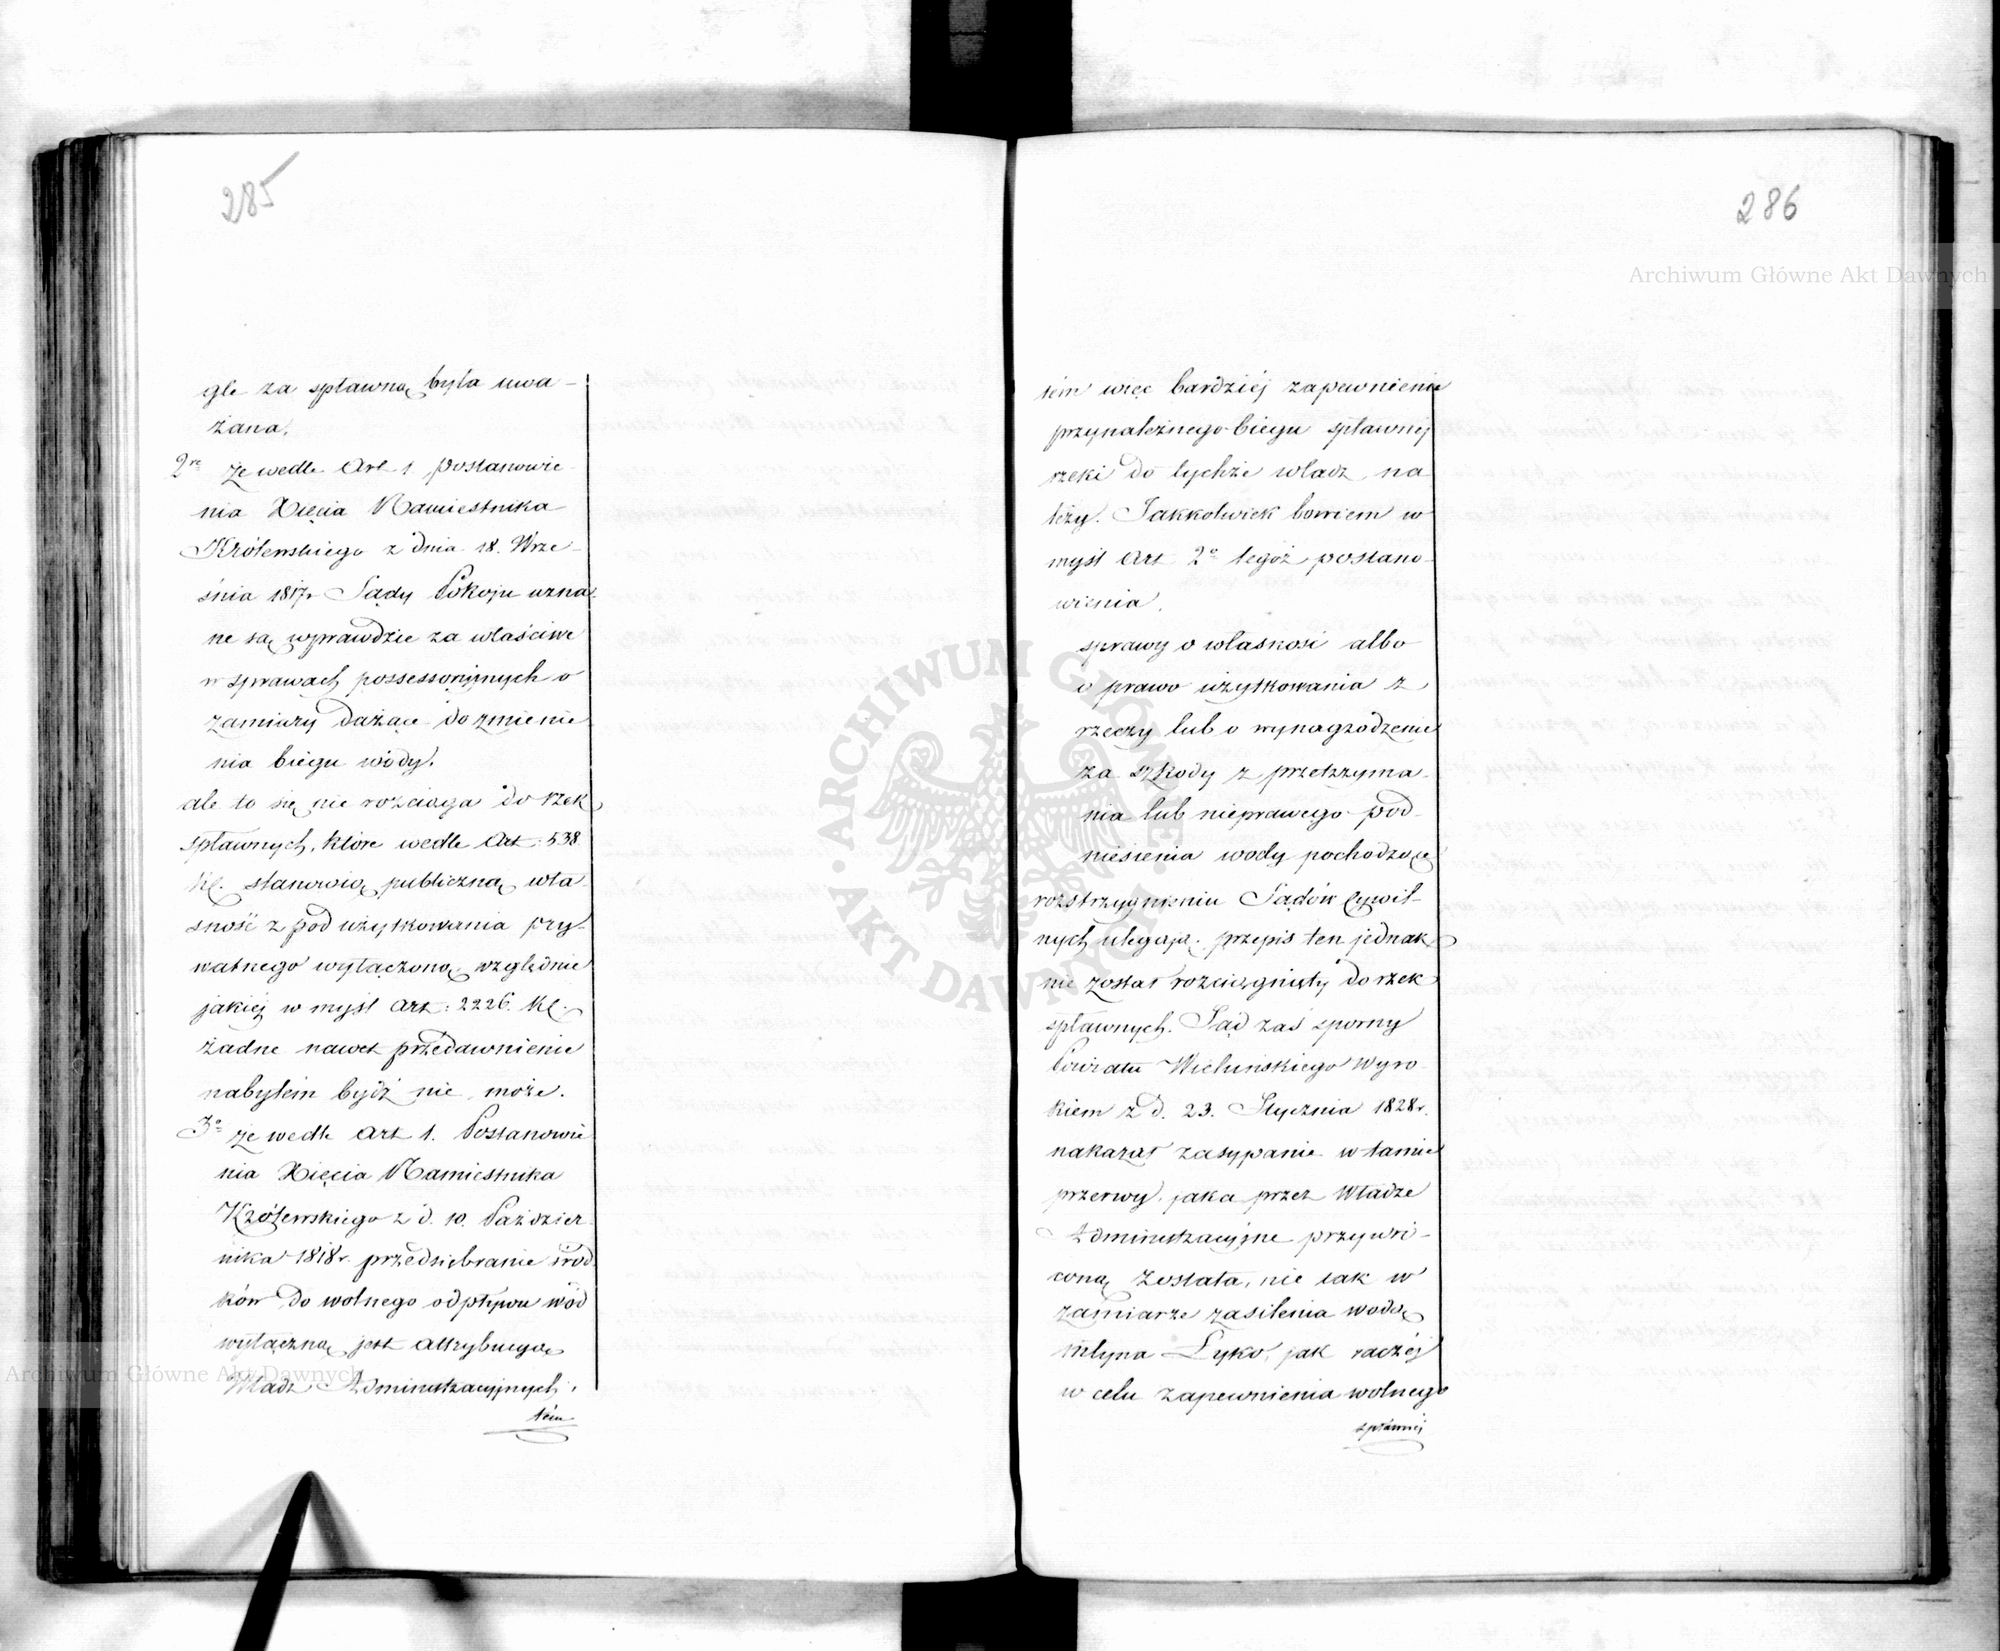 285
gle za spławną była uwa-
żana.
2re że wedle Art 1 postanowie-
nia Xięcia Namiestnika
Królewskiego z dnia 18. Wrze-
śnia 1817r Sądy Pokoju uzna-
ne są wprawdzie za właściwe
w sprawach possessoryjnych o
zamiary dażące do zmienie-
nia biegu wody.
ale to się nie rozciąga do rzek
spławnych, które wedle Art: 538
KC. stanowią publiczną wła-
sność z pod użytkowania pry-
watnego wyłączoną, względnie
jakiej w myśl Art: 2226. KC.
żadne nawet przedawnienie
nabytem bydź nie może.
3o że wedle Art 1. Postanowie
nia Xięcia Namiestnika
Królewskiego z d. 10. Paździer-
nika 1818r. przedsiębranie środ-
ków do wolnego odpływu wód
wyłączną jest attrybucyą
Władz Administracyjnych,
tém
286
tém więc bardziéj zapewnienie
przynależnego biegu spławnej
rzeki do tychże władz na
leży. Jakkolwiek bowiem w
myśl Art 2o tegoż postano-
wienia,
sprawy o własność albo
o prawo użytkowania z
rzeczy lub o wynagrodzenie
za szkody z przetrzyma-
nia lub nieprawego pod-
niesienia wody pochodzące
rozstrzygnieniu Sądów Cywil-
nych ulegają, przepis ten jednak
nie został rozciągnięty do rzek
spławnych. Sąd zaś sporny
Powiatu Wieluńskiego Wyro-
kiem z d. 23. Stycznia 1828r.
nakazał zasypanie w tamie
przerwy, jaka przez Władze
Administracyjne przywró-
coną została, nie tak w
zamiarze zasilenia wodą
młyna Łyko, jak raczéj
w celu zapewnienia wolnego
spławnéj
Archiwum Główne Akt Dawnych
Archiwum Główne Akt Dawnych
ARCHIWUM GŁÓWNE AKT DAWNYCH